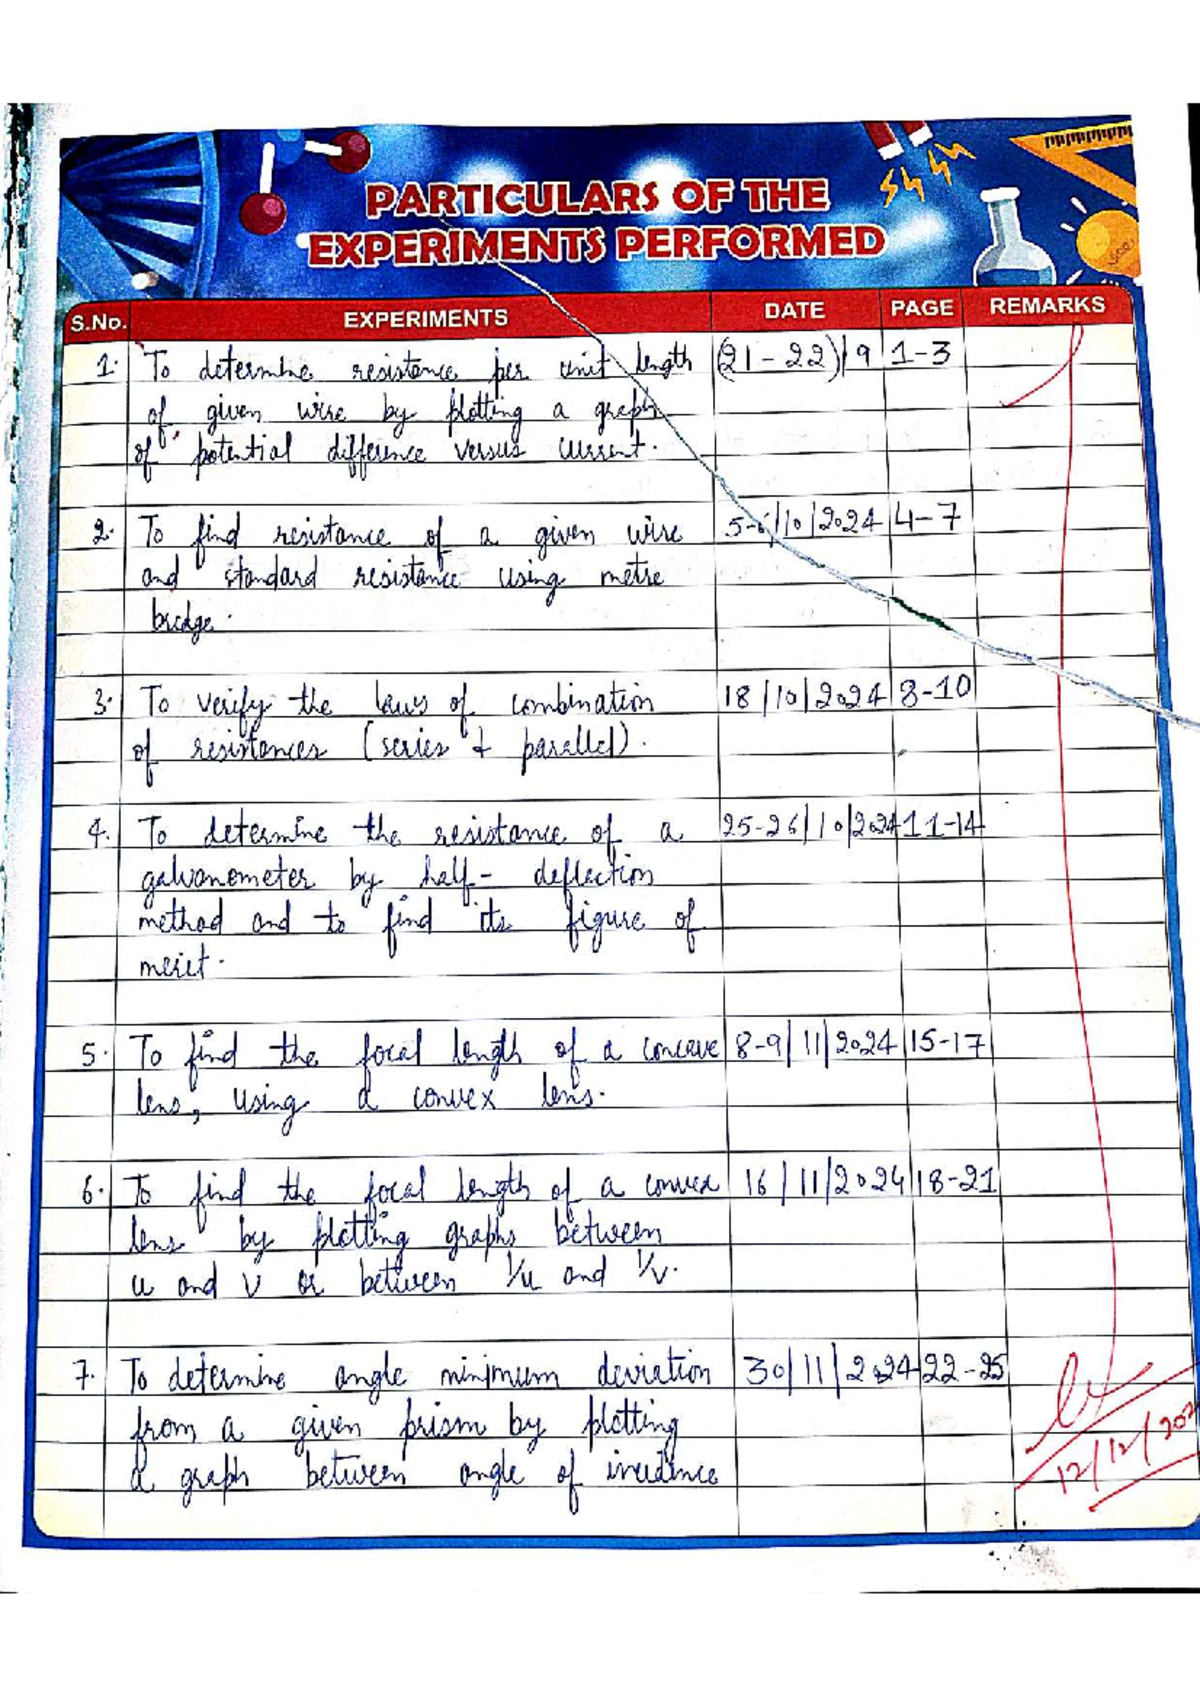 PARTICULARS OF THE
EXPERIMENTS PERFORMED
S.No. EXPERIMENTS DATE PAGE REMARKS
1. To determine resistance per unit length (21-22)/9 1-3
of given wire by plotting a graph
of potential difference versus current.
2. To find resistance of a given wire 5-6/10/2024 4-7
and standard resistance using metre
bridge.
3. To verify the laws of combination 18/10/2024 8-10
of resistances (series & parallel).
4. To determine the resistance of a 25-26/10/2024 11-14
galvanometer by half-deflection
method and to find its figure of
merit.
5. To find the focal length of a concave 8-9/11/2024 15-17
lens, using a convex lens.
6. To find the focal length of a convex 16/11/2024 18-21
lens by plotting graphs between
u and v or between 1/u and 1/v.
7. To determine angle minimum deviation 30/11/2024 22-25
from a given prism by plotting
a graph between angle of incidence
12/12/202